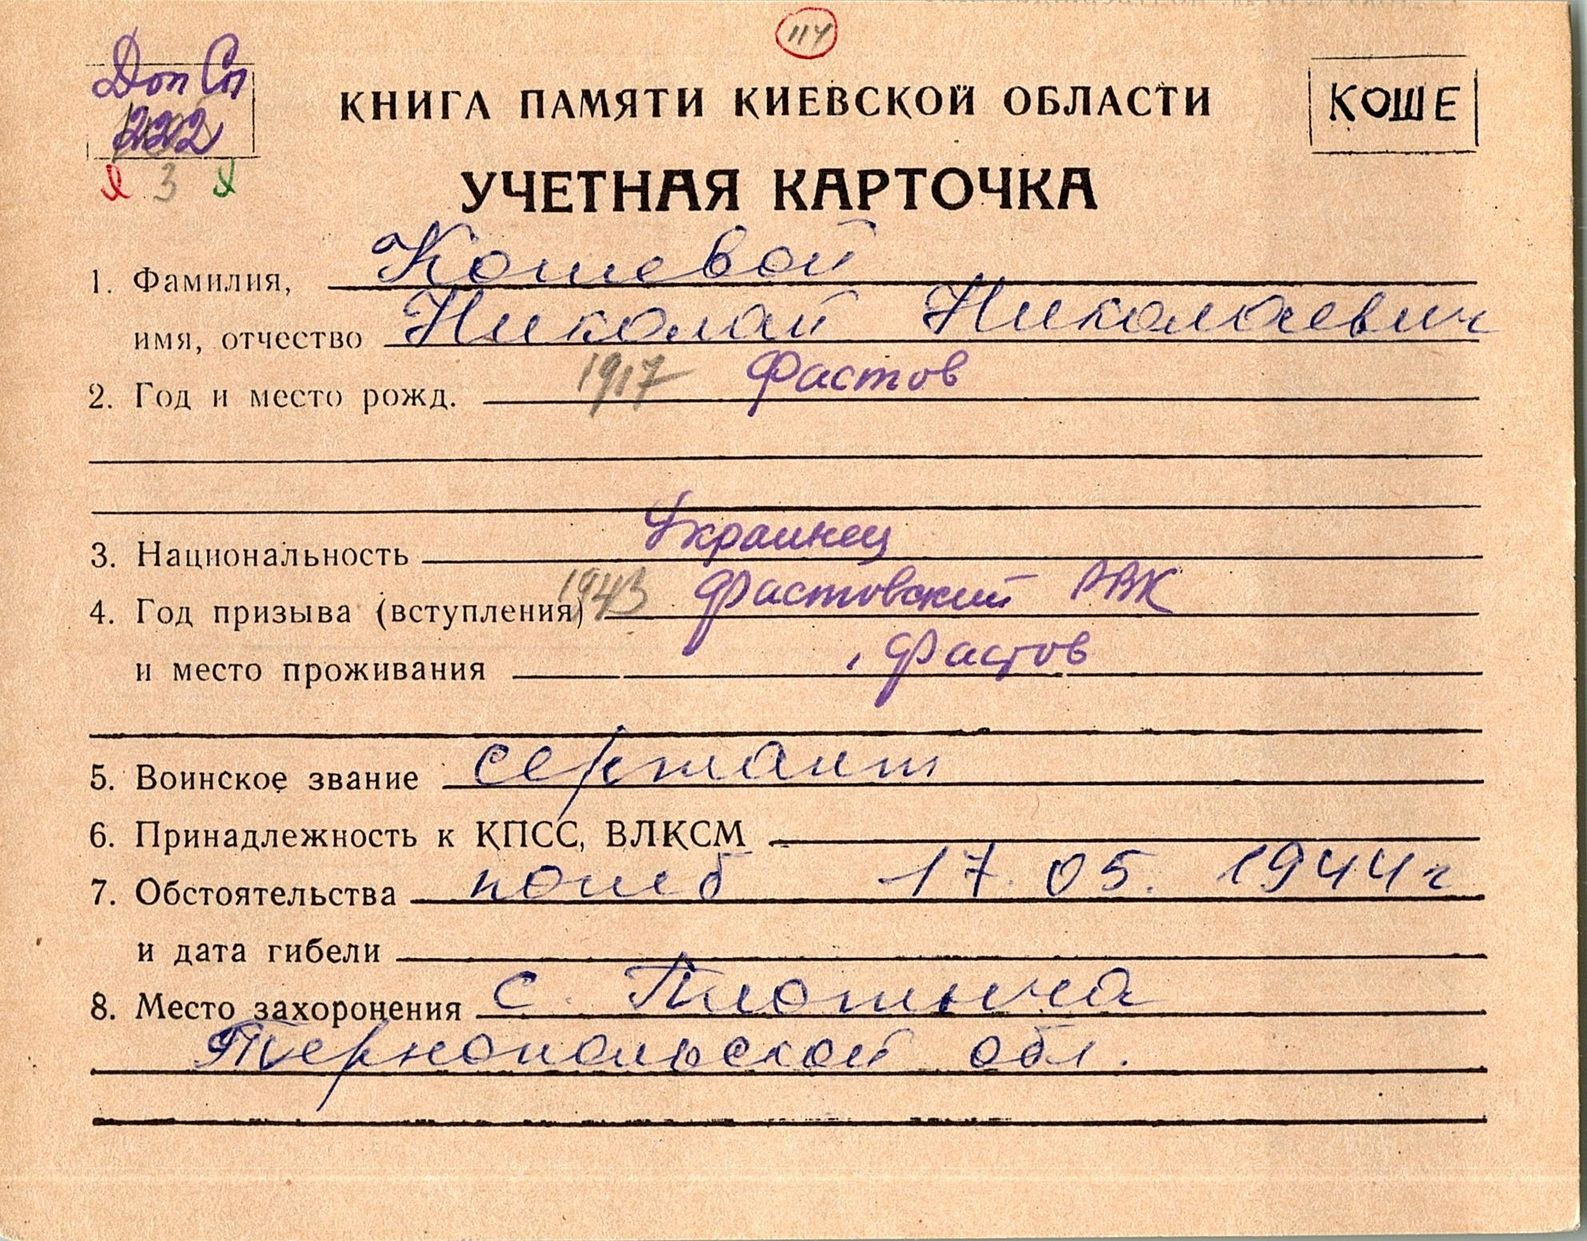 114
Доп Сп
222
3
КНИГА ПАМЯТИ КИЕВСКОЙ ОБЛАСТИ
КОШЕ
УЧЕТНАЯ КАРТОЧКА
1. Фамилия, Кошевой
имя, отчество Николай Николаевич
2. Год и место рожд. 1917 Фастов
3. Национальность Украинец
4. Год призыва (вступления) 1943 Фастовский РВК
и место проживания Фастов
5. Воинское звание сержант
6. Принадлежность к КПСС, ВЛКСМ
7. Обстоятельства погиб 17.05.1944г
и дата гибели
8. Место захоронения с. Плотыча
Тернопольской обл.